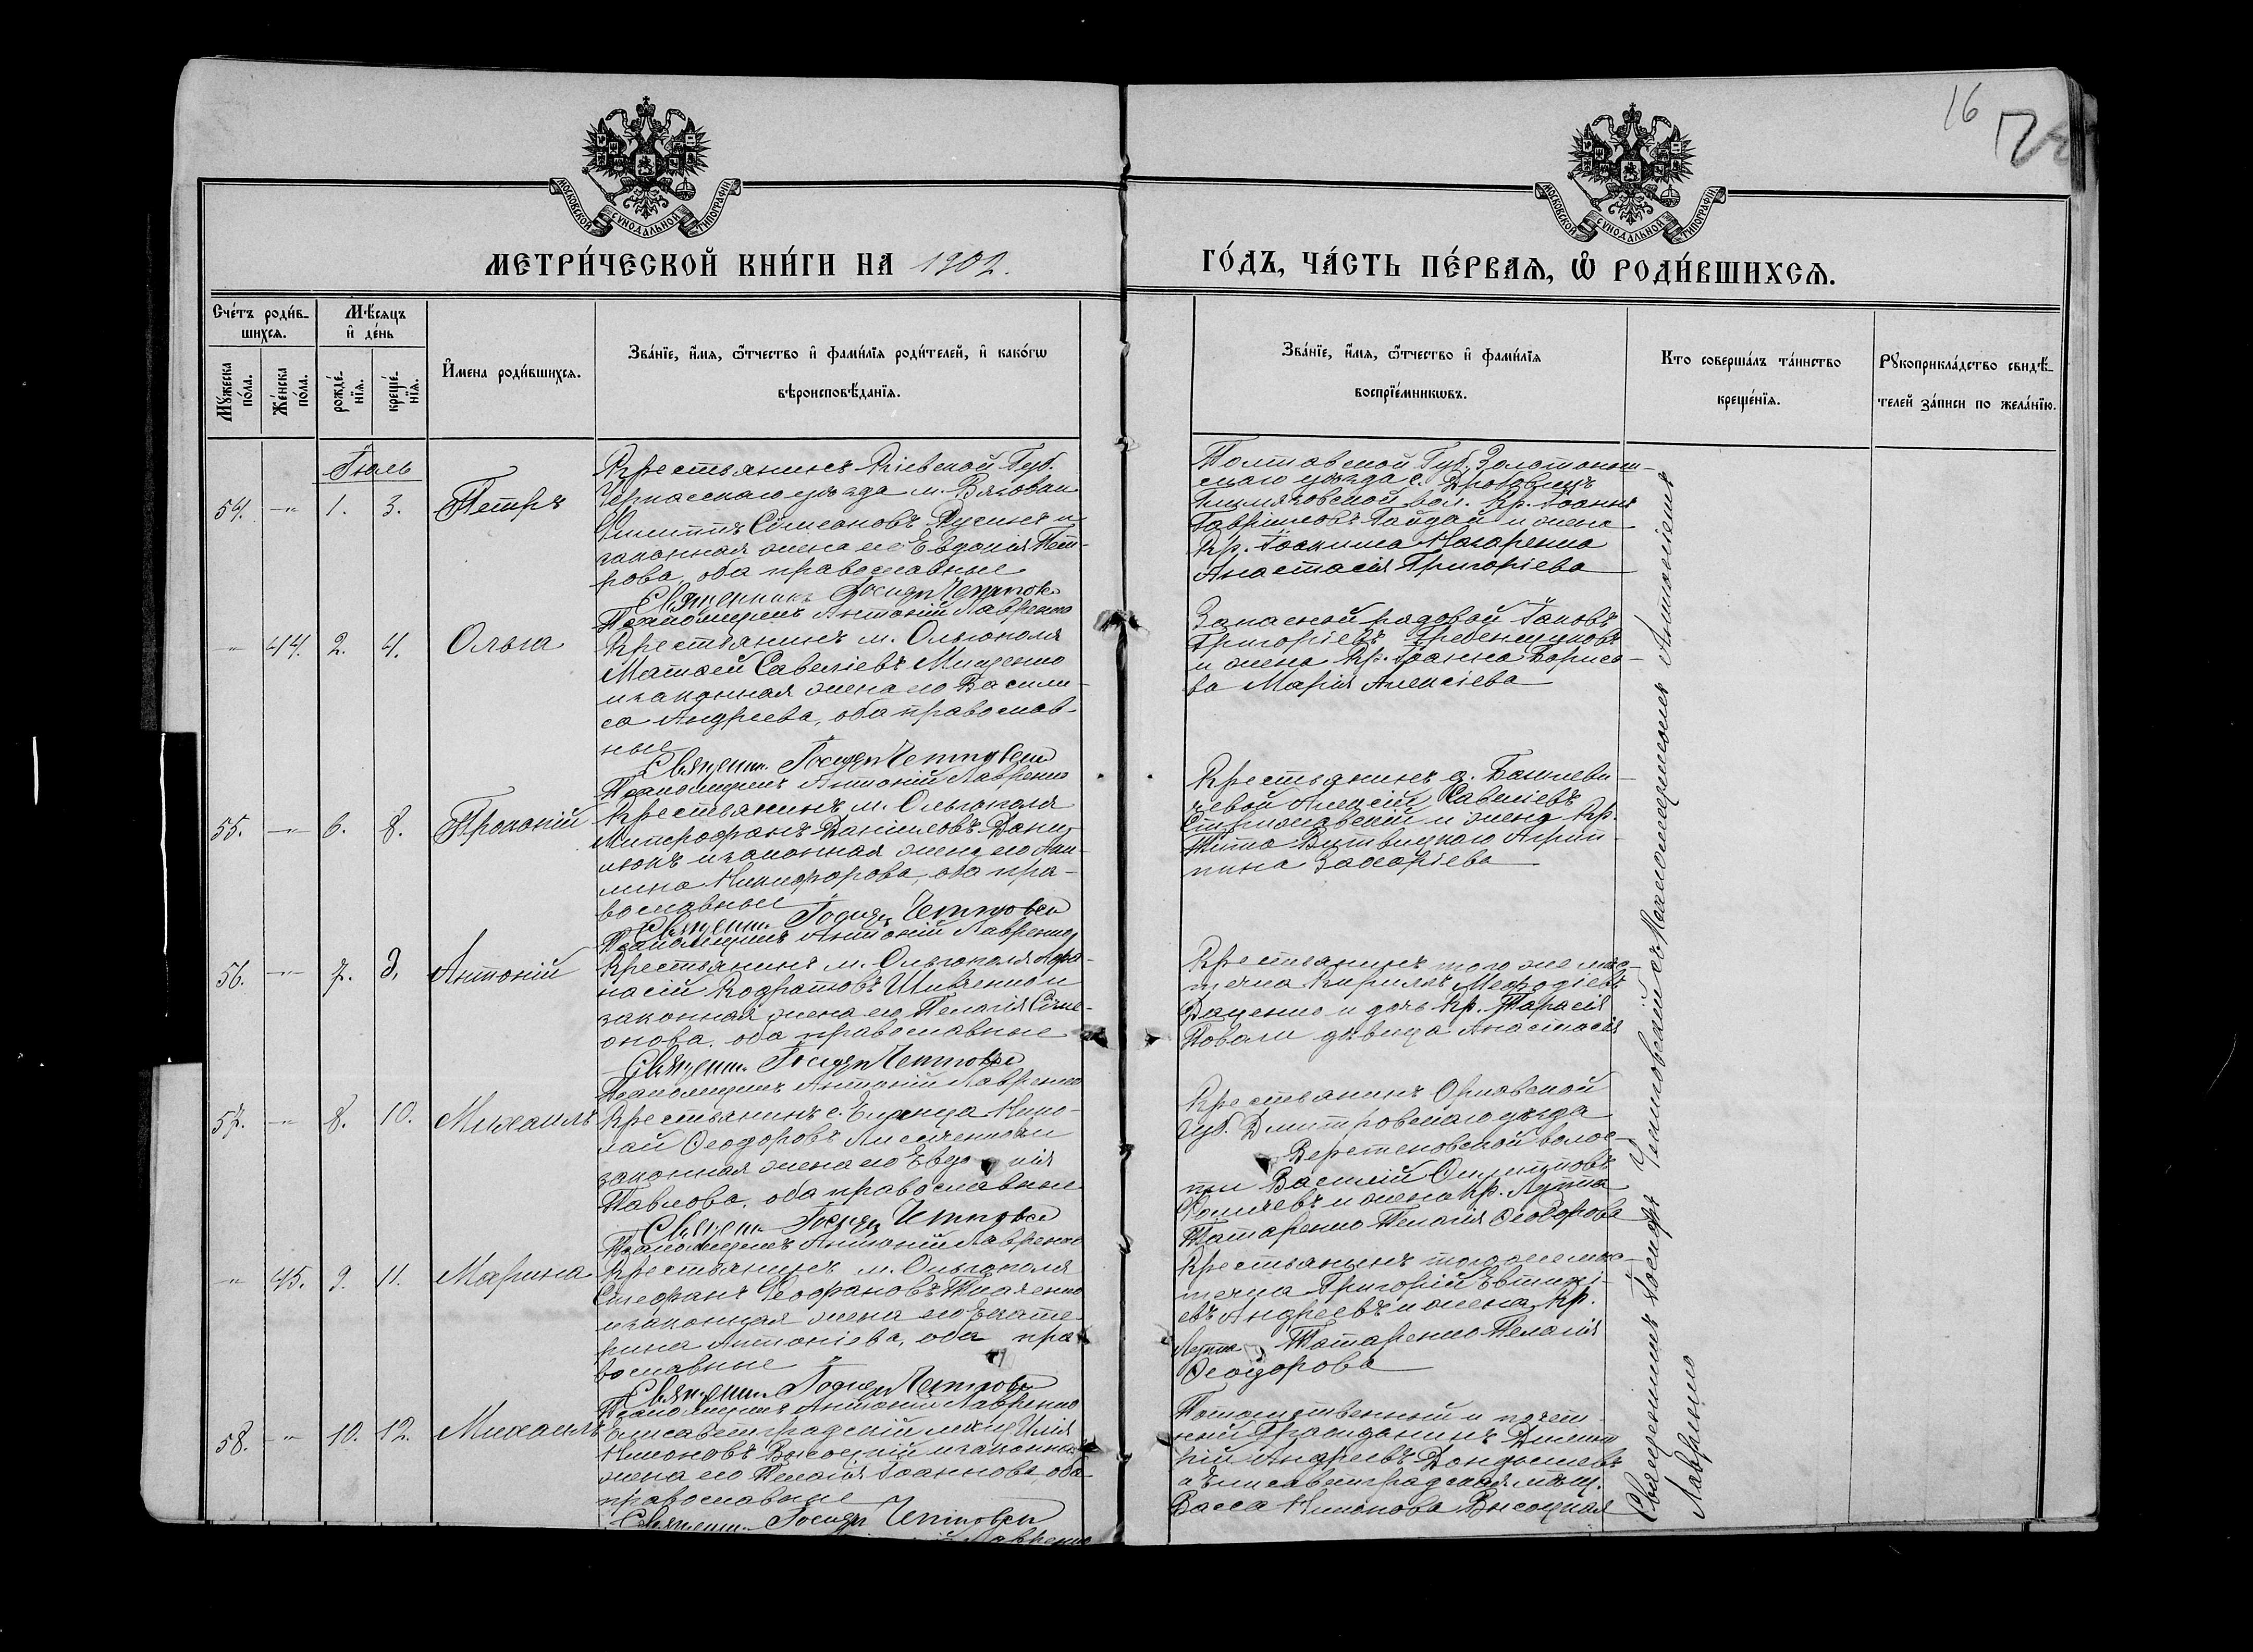 16
МОСКОВСКОЙ СУНОДАЛЬНОЙ ТИПОГРАФІИ
МОСКОВСКОЙ СУНОДАЛЬНОЙ ТИПОГРАФІИ
МЕТРИ́ЧЕСКОЙ КНИ́ГИ НА 1902.
ГО́ДЪ, ЧА́СТЬ ПЕ́РВАѦ, Ѿ РОДИ́ВШИХСѦ.
Сче́тъ роди́в-
шихсѧ.
Мѣ́сѧцъ
и҆ де́нь
Мꙋжеска
по́ла.
Же́нска
по́ла.
рожде́-
нїѧ.
креще́-
нїѧ.
И҆мена роди́вшихсѧ.
Зва́нїе, и҆́мѧ, ѻ҆́тчество и҆ фами́лїѧ роди́телей, и҆ како́гѡ
вѣроисповѣ́данїѧ.
Зва́нїе, и҆́мѧ, ѻ҆́тчество и҆ фами́лїѧ
воспрїе́мникѡвъ.
Кто соверша́лъ та́инство
креще́нїѧ.
Рꙋкоприкла́дство свидѣ́-
телей за́писи по жела́нїю.
Іюль
54. -"- 1. 3. Петръ
Крестьянинъ Кіевской Губ.
Черкасскаго уѣзда м. Вязовки
Сімеоновъ и
законная жена его Евдокія Пет-
рова, оба православные
Священникъ Іосифъ
Псаломщикъ Антоній Лавренко
Полтавской Губ. Золотонош-
скаго уѣзда с.
вол. Кр. Іоаннъ
Гавріиловъ Гайдай и жена
Кр. Іоакима Назаренко
Анастасія Григоріева
-"- 44. 2. 4. Ольга
Крестьянинъ м. Ольгополя
Матѳей Савеліевъ Мищенко
и законная жена его Васили-
са Андреева, оба православ-
ные
Священ. Іосифъ
Псаломщикъ Антоній Лавренко
Запасной рядовой Іаковъ
Григоріевъ Гребенщиковъ
и жена Кр. Іоанна Борисо-
ва Марія Алексіева
55. -"- 6. 8. Прокопій
Крестьянинъ м. Ольгополя
Митрофанъ Даніиловъ Дани-
люкъ и законная жена его Аки-
лина Никифорова, оба пра-
вославные
Священ. Іосифъ
Псаломщикъ Антоній Лавренко
Крестьянинъ д.
Алексій Савеліевъ
и жена Кр.
Тита Витвицкаго Агрип-
пина Захаріева
56. -"- 7. 8. Антоній
Крестьянинъ м. Ольгополя Аѳа-
насій Кодратовъ Шевченко и
законная жена его Пелагія Сіме-
онова, оба православные
Священ. Іосифъ
Псаломщикъ Антоній Лавренко
Крестьянинъ того же мѣс-
течка Кириллъ Меѳодіевъ
Даценко и дочь Кр. Тарасія
дѣвица Анастасія
57. -"- 8. 10. Михаилъ
Крестьянинъ с. Еланца Нико-
лай Ѳеодоровъ и
законная жена его Евдокія
Павлова, оба православные
Священ. Іосифъ
Псаломщикъ Антоній Лавренко
Крестьянинъ Орловской
Губ. Дмитровскаго уѣзда
волос-
ти Василій
и жена Кр. Луппа
Татаренко Пелагія Ѳеодорова
-"- 45. 9. 11. Марина
Крестьянинъ м. Ольгополя
Стефанъ Ѳеофановъ Ткаченко
и законная жена его Екате-
рина Антоніева, оба пра-
вославные
Священ. Іосифъ
Псаломщикъ Антоній Лавренко
Крестьянинъ того же мѣс-
течка Григорій Евтихі-
евъ Андреевъ и жена Кр.
Луппа Татаренко Пелагія
Ѳеодорова
58. -"- 10. 12. Михаилъ
Елисаветградскій мѣщ. Илія
Никоновъ Высоцкій и законная
жена его Пелагія Іоаннова, оба
православные
Священ. Іосифъ
Лавренко
Потомственный и почет-
ный Гражданинъ Димит-
рій Андреевъ
а Елисаветградская мѣщ.
Васса Никонова Высоцкая
Священникъ Іосифъ съ Псаломщикомъ Антоніемъ
Лавренко